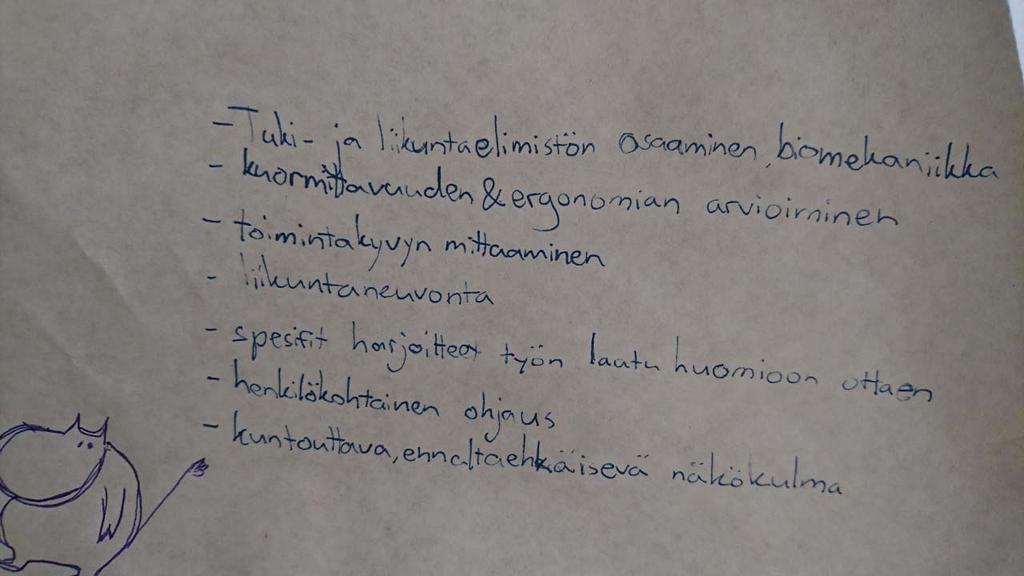 - Tuki- ja liikuntaelimistön osaaminen, biomekaniikka
- kuormittavuuden & ergonomian arvioiminen
- toimintakyvyn mittaaminen
- liikuntaneuvonta
- spesifit harjoitteet työn laatu huomioon ottaen
- henkilökohtainen ohjaus
- kuntouttava, ennaltaehkäisevä näkökulma